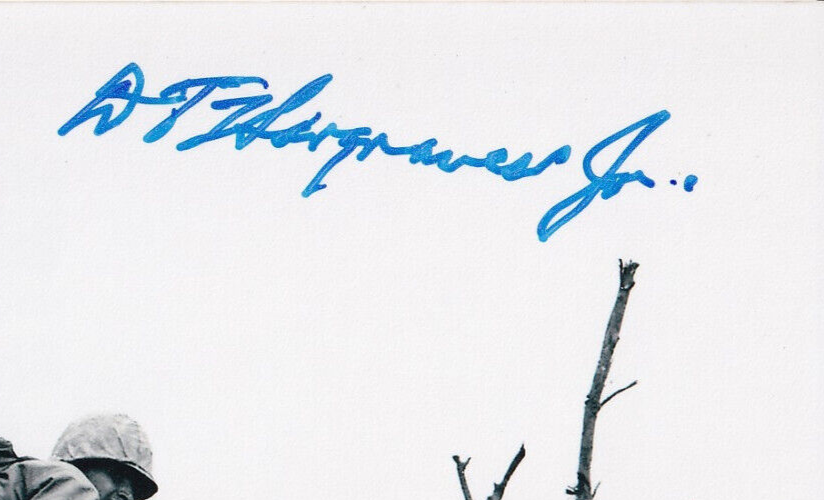 D T Hargraves Jr.